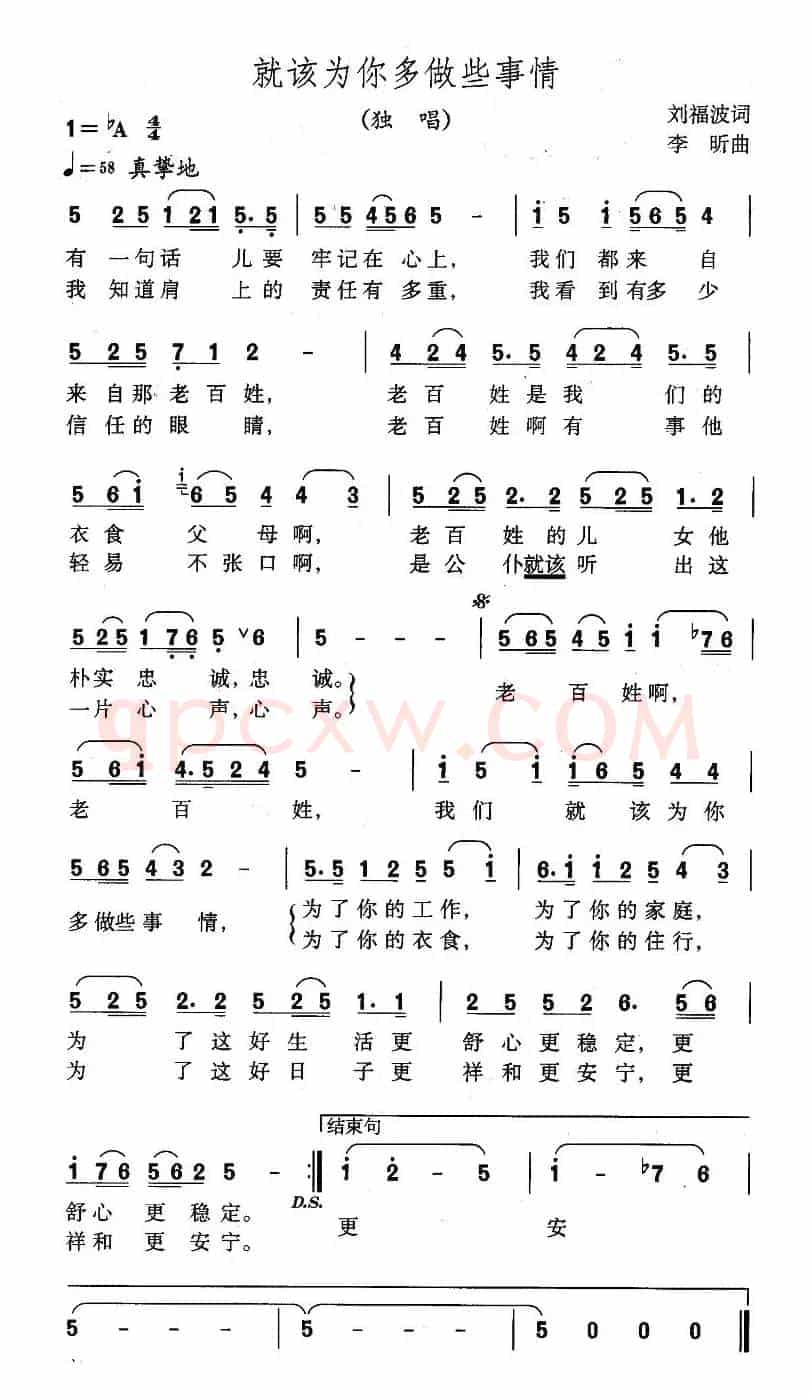 就该为你多做些事情
(独 唱)
刘福波词
李 昕曲
1=♭A 4/4
♩=58 真挚地
5 2 5 1 2 1 5. 5 | 5 5 4 5 6 5 5 - | i 5 i 5 6 5 4 |
有 一句话 儿要 牢记在 心上, 我们 都来 自
我 知道肩 上的 责任有 多重, 我看 到有多 少
5 2 5 7 1 2 - | 4 2 4 5. 5 4 2 4 5. 5 |
来 自那 老百 姓, 老百 姓是我 们的
信 任的 眼 睛, 老百 姓啊有 事他
5 6 i i 6 5 4 4 3 | 5 2 5 2. 2 5 2 5 1. 2 |
衣食 父 母啊, 老百 姓的儿 女他
轻易 不张口啊, 是公 仆就该听 出这
𝄋
5 2 5 1 7 6 5 ∨ 6 | 5 - - - | 5 6 5 4 5 i i ♭7 6 |
朴实 忠 诚,忠 诚。 老 百 姓啊,
一片 心 声,心 声。
qpcxw.COM
5 6 i 4. 5 2 4 5 - | i 5 i i 6 5 4 4 |
老 百 姓, 我们 就 该为你
5 6 5 4 3 2 - | 5. 5 1 2 5 5 i | 6. i 1 2 5 4 3 |
多做些 事 情, 为了你的工作, 为了你的家庭,
为了你的衣食, 为了你的住行,
5 2 5 2. 2 5 2 5 1. 1 | 2 5 5 2 6. 5 6 |
为 了这好生 活更 舒心更稳定,更
为 了这好日 子更 祥和更安宁,更
结束句
i 7 6 5 6 2 5 - :| i 2 - 5 | i - ♭7 6 |
D.S.
舒心 更 稳定。 更 安
祥和 更 安宁。
5 - - - | 5 - - - | 5 0 0 0 ‖